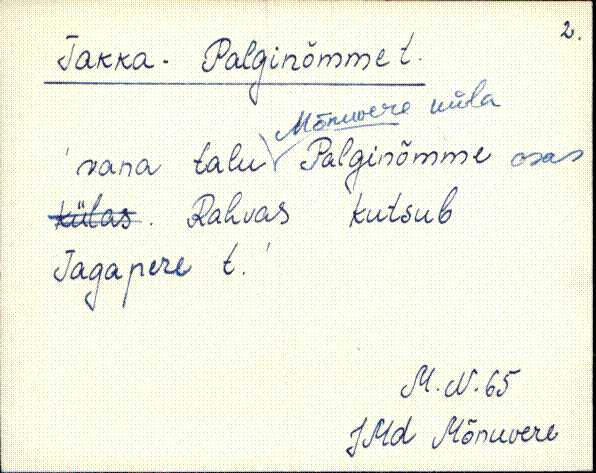 2.
Takka-Palginõmme t.
Mõnuvere küla
'vana talu Palginõmme osas
külas. Rahvas kutsub
Tagapere t.'
M.N. 65
JMd Mõnuvere